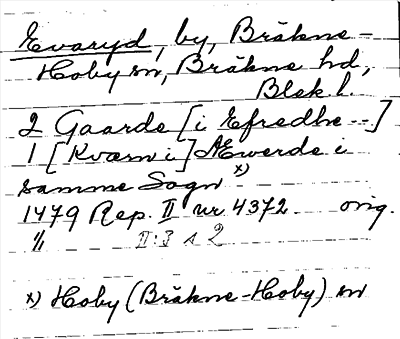 Evaryd, by, Bräkne-
Hoby sn, Bräkne hd,
Blek. l.
2 Gaarde [i Efredhe--]
1 [Kværn i] Æwerde i
samme Sogn x)
1479 Rep. II nr 4372 orig.
" II:3 s 2
x) Hoby (Bräkne-Hoby) sn